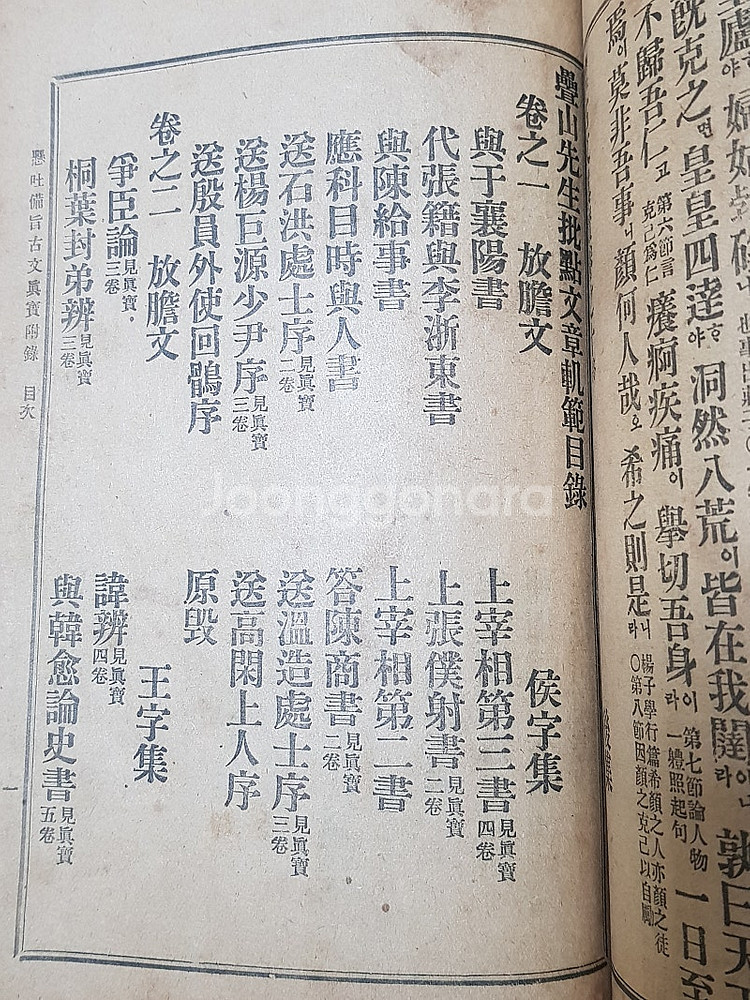 旣克之면皇皇四達야洞然八荒이皆在我闥이라孰曰天
不歸吾仁고第六節言克己爲仁癢痾疾痛이擧切吾身이라第七節論人物一體照起句一日至
焉이莫非吾事니顔何人哉오希之則是니라楊子學行篇希顔之人亦顔之徒○第八節因顔之克己以自勵
疊山先生批點文章軌範目錄
卷之一 放膽文 侯字集
與于襄陽書 上宰相第三書見眞寶四卷
代張籍與李浙東書 上張僕射書見眞寶二卷
與陳給事書 上宰相第二書
應科目時與人書 答陳商書見眞寶二卷
送石洪處士序見眞寶二卷 送溫造處士序見眞寶三卷
送楊巨源少尹序見眞寶三卷 送高閑上人序
送殷員外使回鶻序 原毁
卷之二 放膽文 王字集
爭臣論見眞寶三卷 諱辨見眞寶四卷
桐葉封弟辨見眞寶三卷 與韓愈論史書見眞寶五卷
懸吐備旨古文眞寶附錄 目次 一
Joonggonara